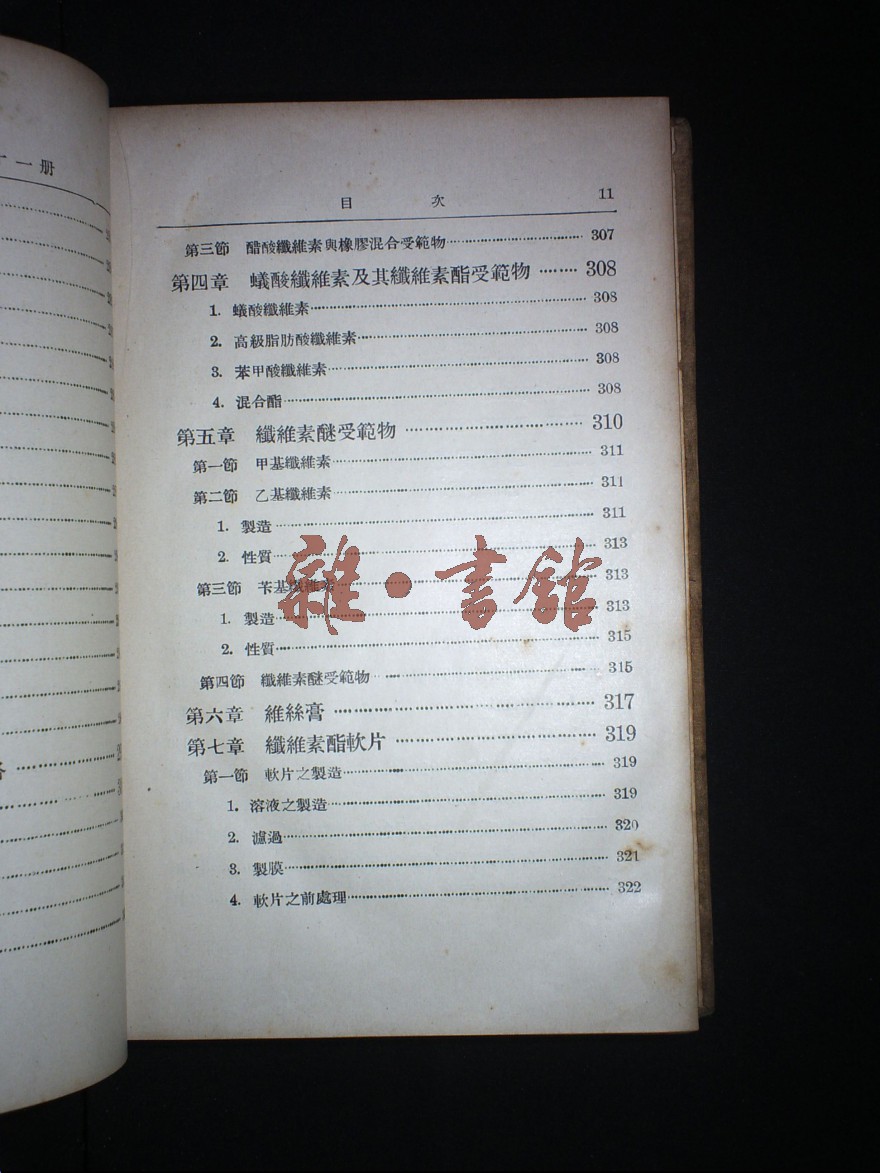 一册
目 次 11
第三節 醋酸纖維素與橡膠混合受範物 307
第四章 蟻酸纖維素及其纖維素酯受範物 308
1. 蟻酸纖維素 308
2. 高級脂肪酸纖維素 308
3. 苯甲酸纖維素 308
4. 混合酯 308
第五章 纖維素醚受範物 310
第一節 甲基纖維素 311
第二節 乙基纖維素 311
1. 製造 311
2. 性質 313
第三節 苄基纖維素 313
1. 製造 313
2. 性質 315
第四節 纖維素醚受範物 315
第六章 維絲膏 317
第七章 纖維素酯軟片 319
第一節 軟片之製造 319
1. 溶液之製造 319
2. 濾過 320
3. 製膜 321
4. 軟片之前處理 322
雜·書館